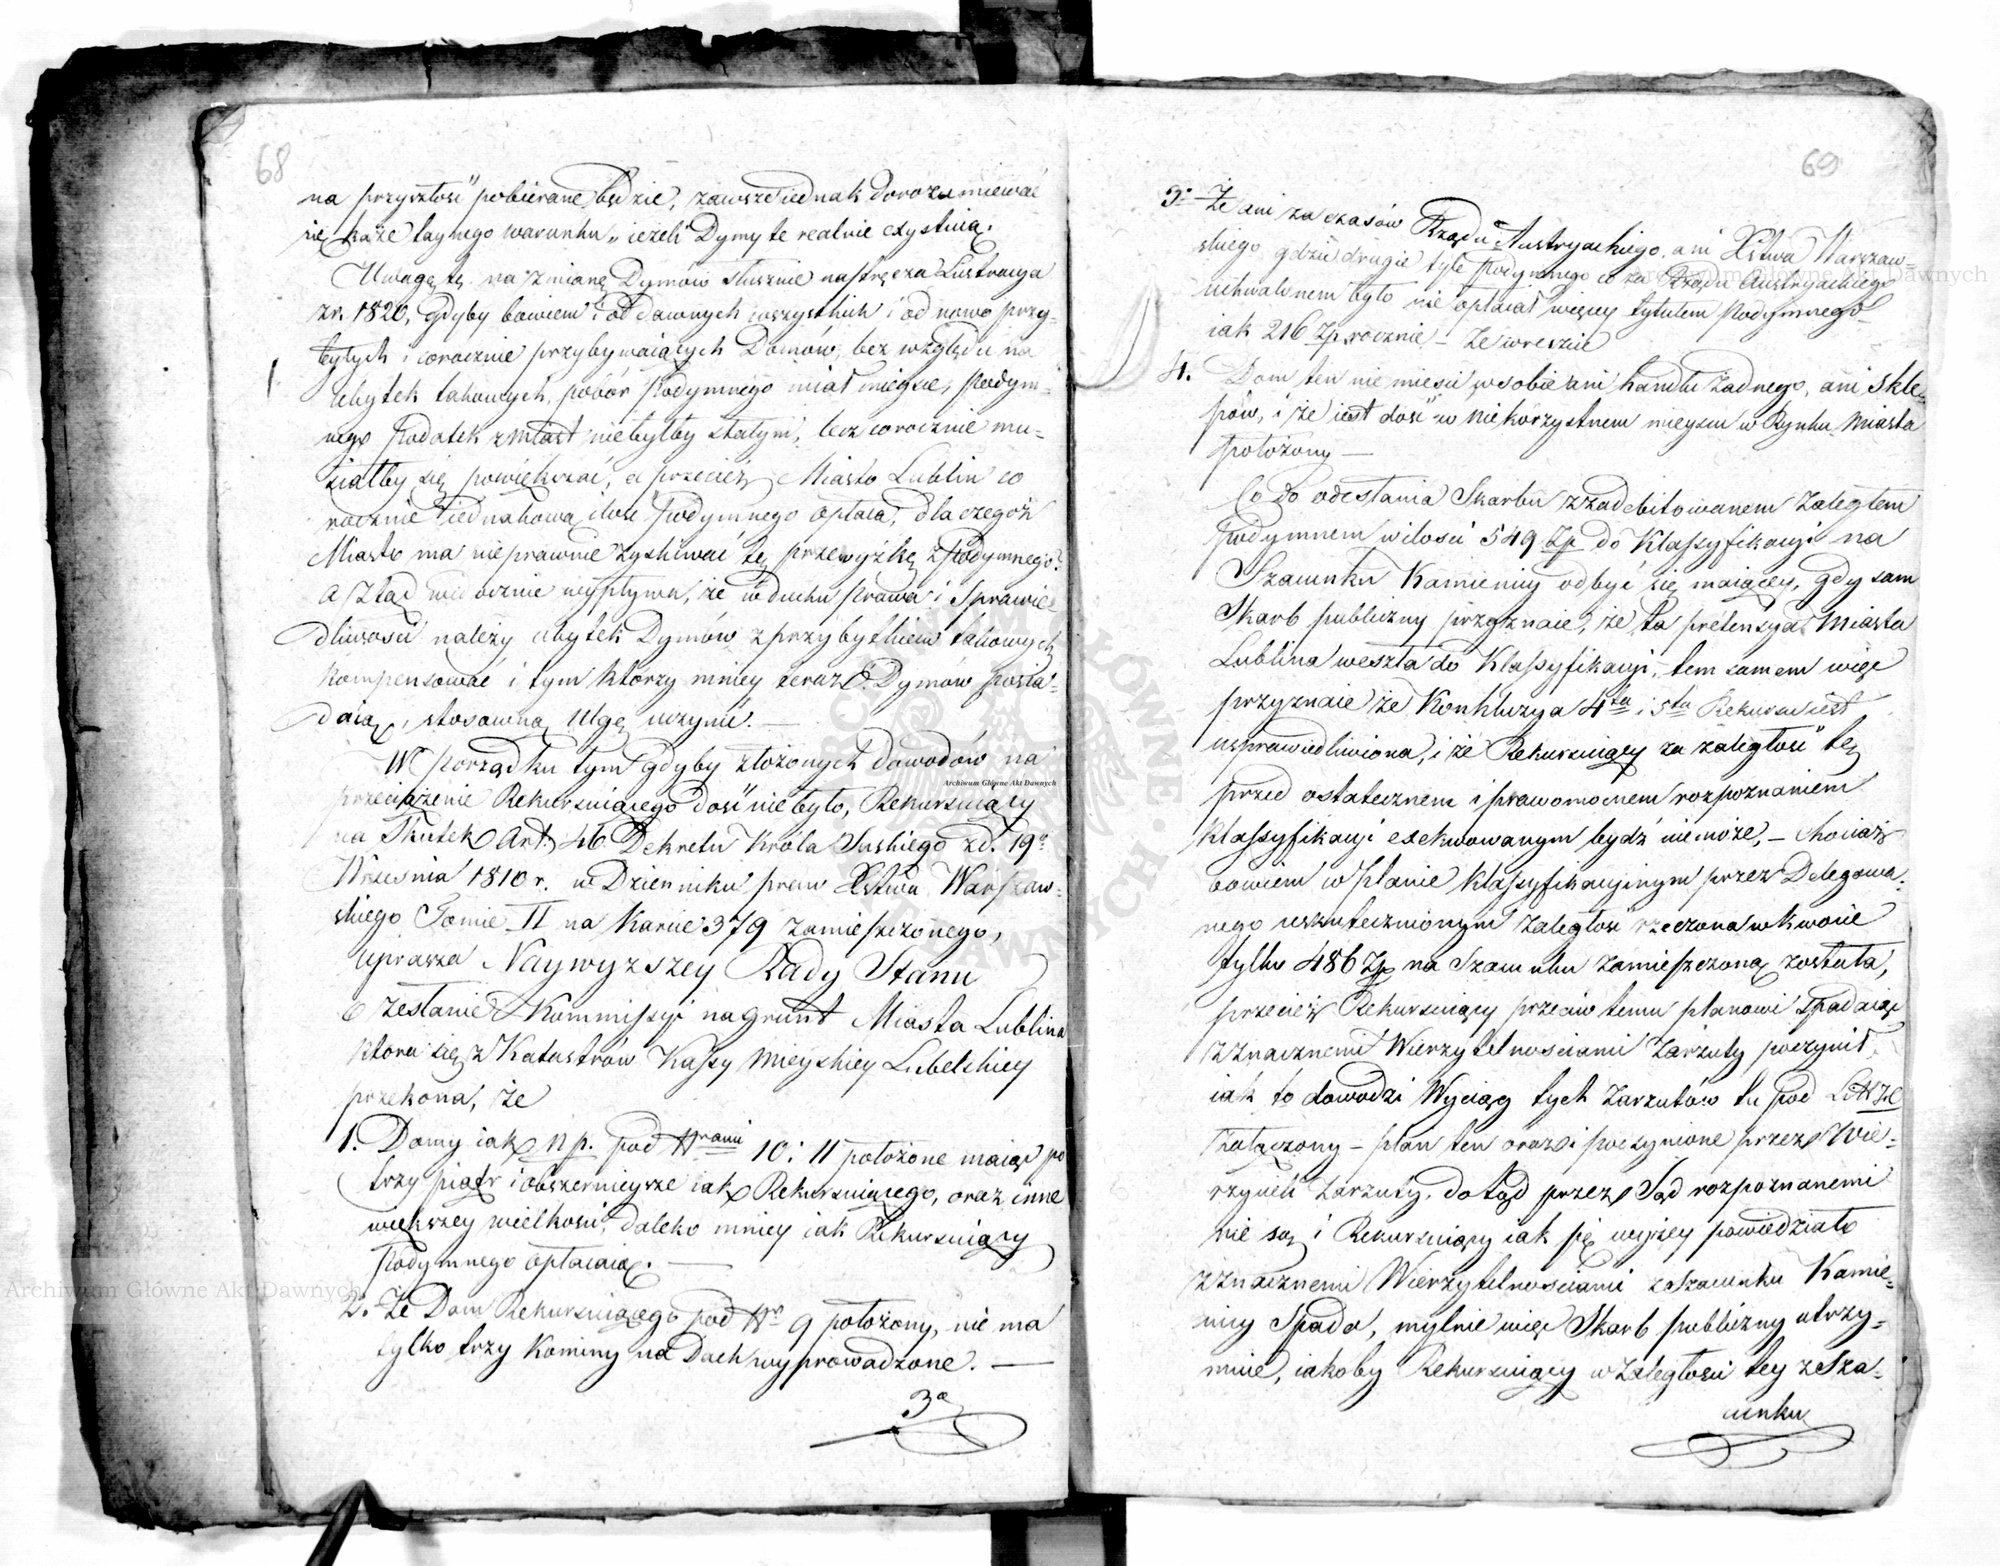 68
na przyszłość pobierane będzie, zawsze iednak dorozumiewać
się każe taynego warunku, ieżeli Dymy te realnie exystuią.
Uwagę tę na zmianę Dymów słusznie nastręcza Lustracya
z r. 1820, gdyby bowiem i od dawnych wszystkich i od nowo przy-
bytych i corocznie przybywaiących Domów, bez względu na
ubytek takowych, pobór Podymnego miał mieysce, Podym-
nego Podatek z Miast nie byłby stałym, lecz corocznie mu-
siałby się powiększać, a przecież Miasto Lublin co
rocznie iednakową ilość Podymnego opłaca, dla czegoż
Miasto ma nieprawnie zyskiwać tę przewyżkę z Podymnego?
a ztąd widocznie wypływa, że w duchu prawa i Sprawie-
dliwości należy ubytek Dymów z przybytkiem takowych
kompensować i tym którzy mniey teraz Dymów posia-
daią, stosowną ulgę uczynić. —
W porządku tym gdyby złożonych dowodów na
przeciążenie Rekursuiącego dość nie było, Rekursuiący
na skutek Art: 46 Dekretu Króla Saskiego z d. 19º
Września 1810 r. w Dzienniku praw Xstwa Warszaw-
skiego Tomie II na karcie 379 zamieszczonego,
uprasza Naywyższey Rady Stanu
o zesłanie Kommissyi na grunt Miasta Lublina
która się z Katastrów Kassy Mieyskiey Lubelskiey
przekona, że
1. Domy iak np. pod Nrami 10 i 11 położone maiąc po
trzy piątr i obszernieysze iak Rekursuiącego, oraz inne
większey wielkości, daleko mniey iak Rekursuiący
Podymnego opłacaią. —
2. Że Dom Rekursuiącego pod Nr 9 położony, nie ma
tylko trzy Kominy na Dach wyprowadzone. —
3º
69
3º Że ani za czasów Rządu Austryackiego, ani Xstwa Warszaw-
skiego, gdzie drugie tyle Podymnego co za Rządu Austryackiego
uchwalonem było nie opłacał więcey tytułem Podymnego
iak 216 Zp rocznie — Że wreszcie
4. Dom ten nie mieści w sobie ani handlu żadnego, ani Skle-
pów, i że iest dość w niekorzystnem mieyscu w Rynku Miasta
położony —
Co do odesłania Skarbu z zadebitowanem zaległem
Podymnem w ilości 549 Zp do Klassyfikacyi na
Szacunku Kamienicy odbyć się maiącey, gdy sam
Skarb publiczny przyznaie, że ta pretensya Miasta
Lublina weszła do Klassyfikacyi, tem samem więc
przyznaie że Konkluzya 4ta i 5ta Rekursu iest
usprawiedliwiona, i że Rekursuiący za zaległość tę
przed ostatecznem i prawomocnem rozpoznaniem
Klassyfikacyi exekwowanym bydź nie może, — Chociaż
bowiem w planie Klassyfikacyinym przez Delegowa-
nego uskutecznionym zaległość rzeczona w kwocie
tylko 486 Zp na Szacunku zamieszczoną została,
przecież Rekursuiący przeciw temu planowi spadaiąc
z znacznemi Wierzytelnościami Zarzuty poczynił
iak to dowodzi Wyciąg tych Zarzutów tu pod
załączony — plan ten oraz i poczynione przez Wie-
rzycieli Zarzuty, dotąd przez Sąd rozpoznanemi
nie są i Rekursuiący iak się wyżey powiedziało
z znacznemi Wierzytelnościami z Szacunku Kamie-
nicy Spada, mylnie więc Skarb publiczny utrzy-
muie, iakoby Rekursuiący w zaległości tey z Sza-
cunku
Archiwum Główne Akt Dawnych
Archiwum Główne Akt Dawnych
Archiwum Główne Akt Dawnych